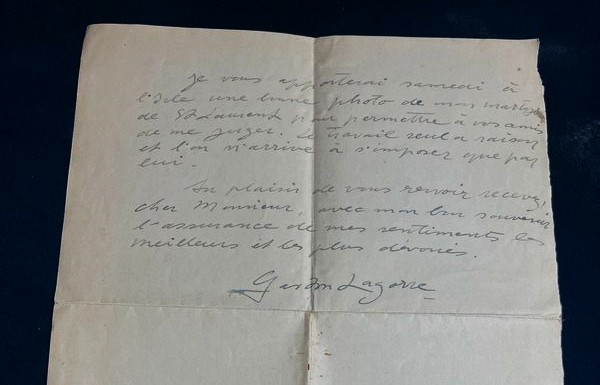 Je vous apporterai samedi à
l'Isle une bonne photo de mon martyre
de St Laurent pour permettre à vos amis
de me juger. Le travail seul a raison
et l'on n'arrive à s'imposer que par
lui.
Au plaisir de vous revoir recevez,
cher Monsieur, avec mon bon souvenir
l'assurance de mes sentiments les
meilleurs et les plus dévoués.
Gaston Lagorre